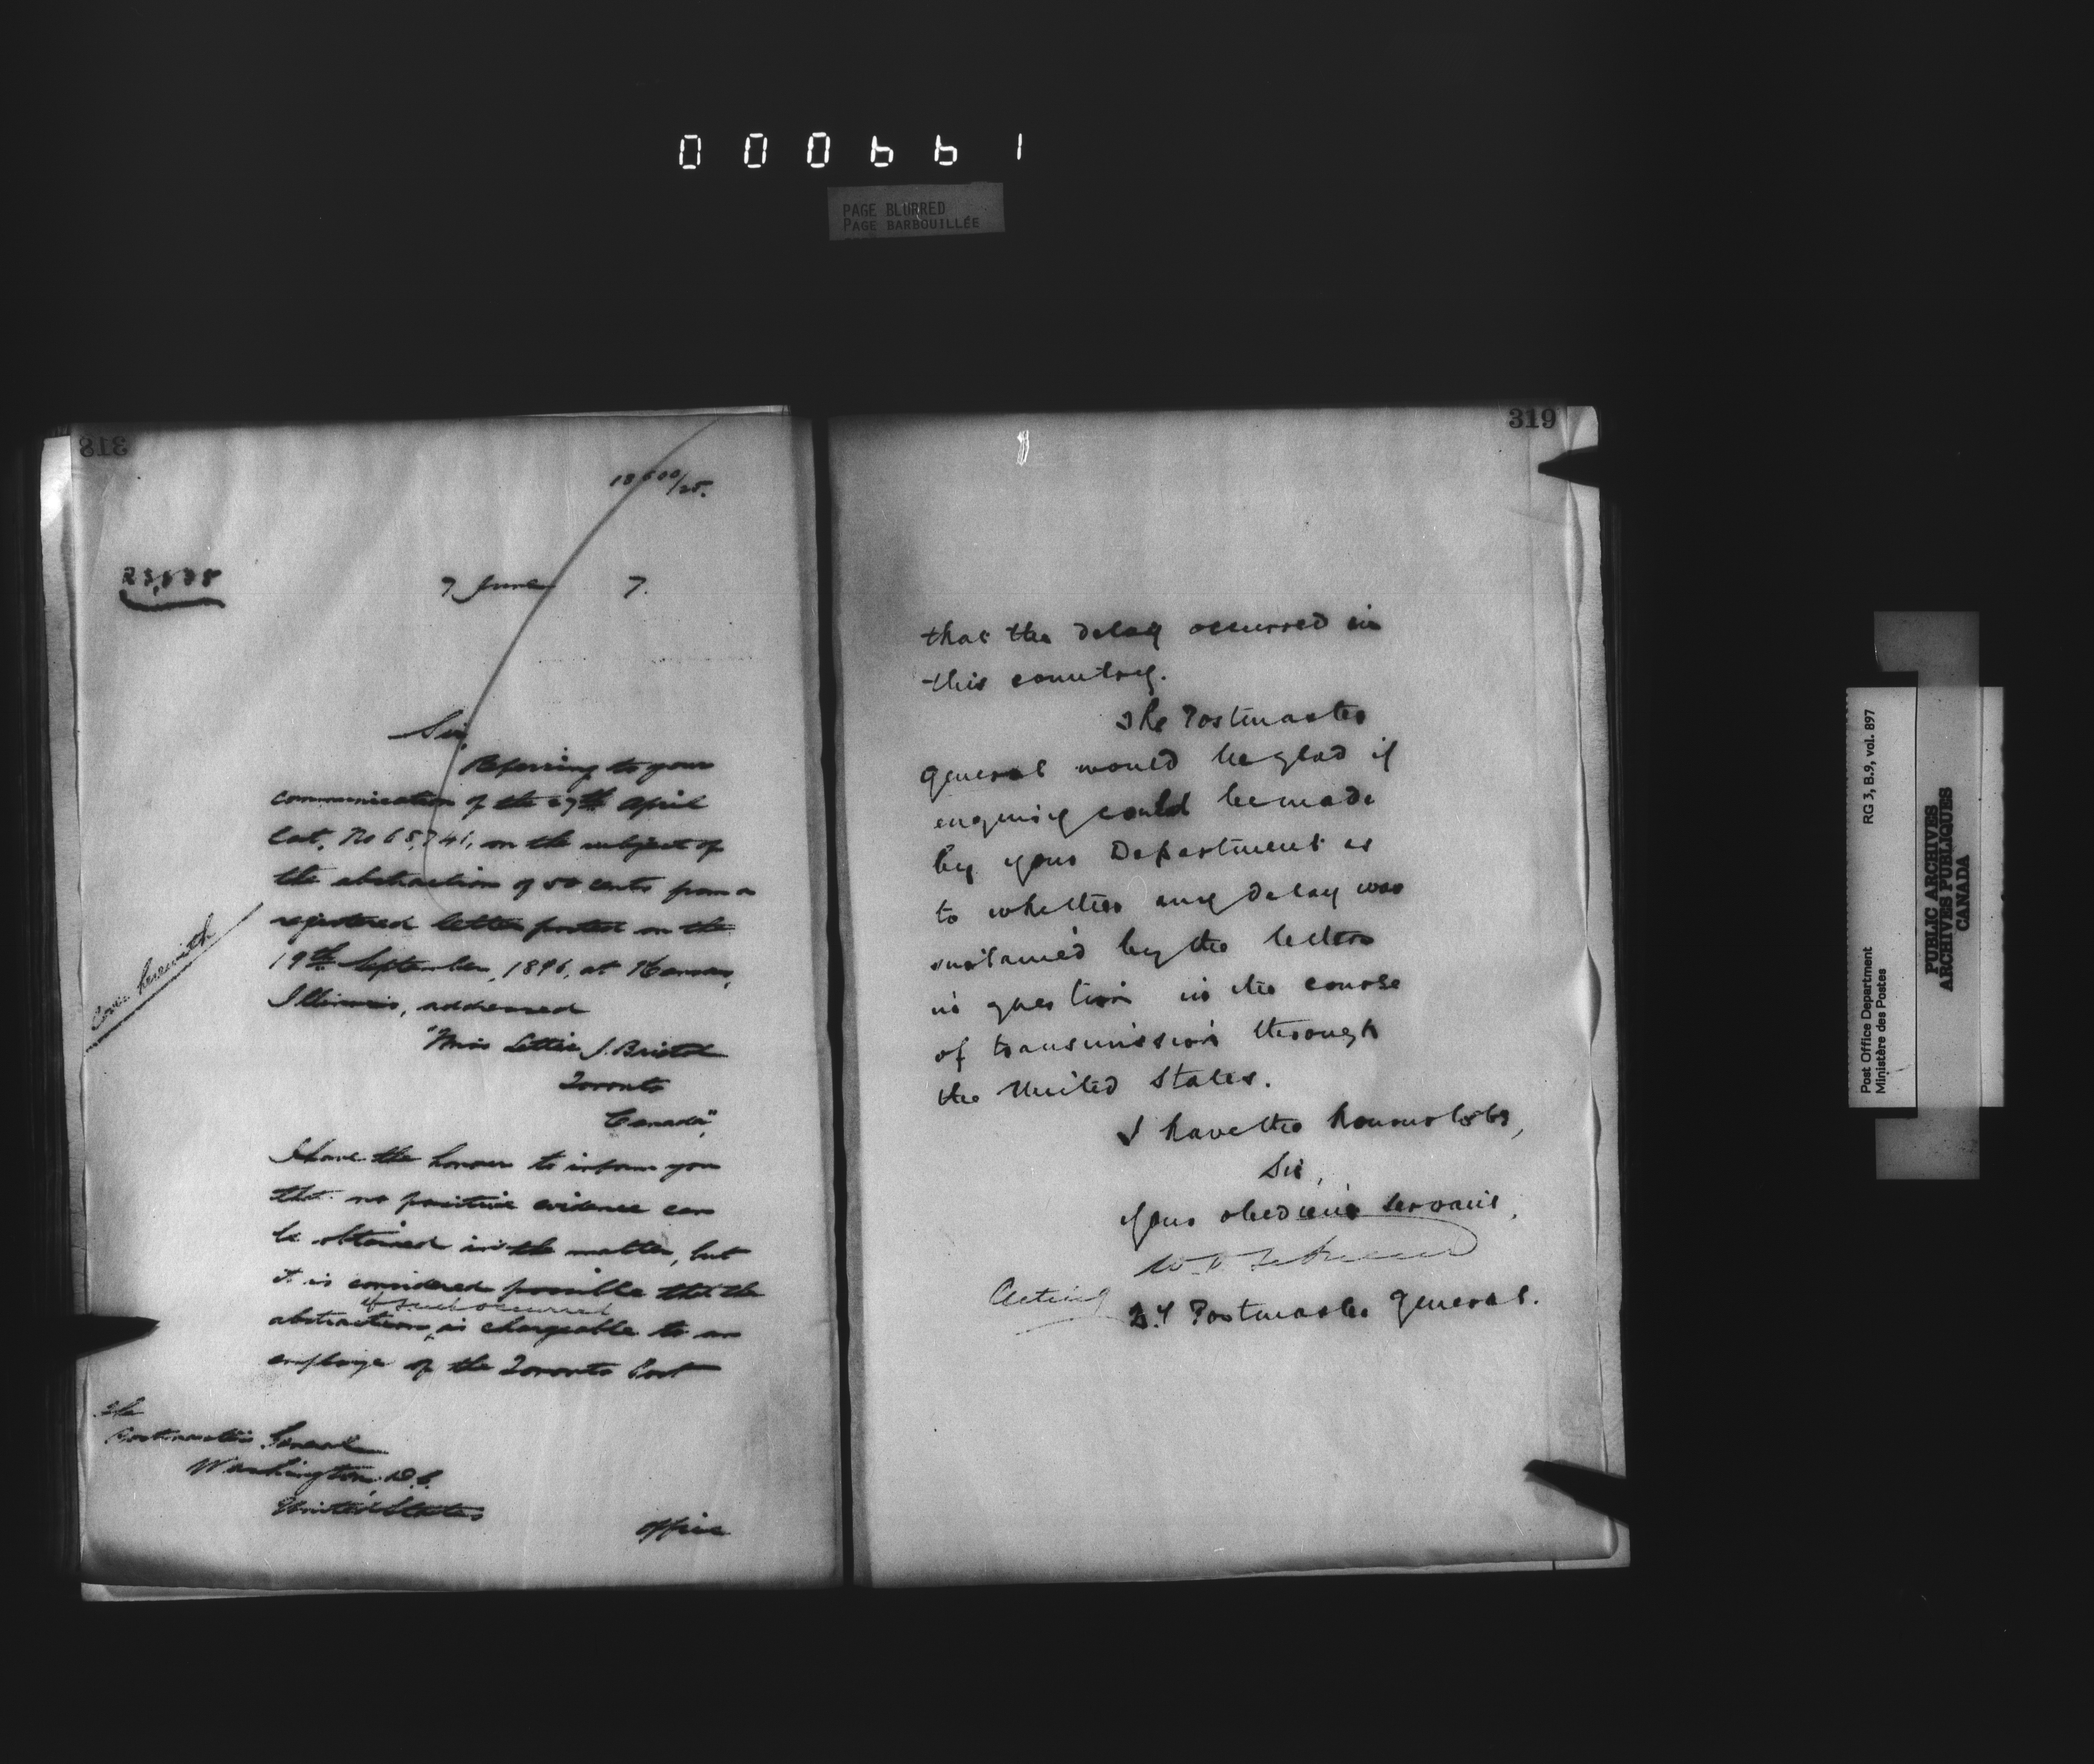 000661
PAGE BLURRED
PAGE BARBOUILLÉE
318
18500/25.
23,535
7 June 7.
Sir,
Referring to your
communication of the 27th April
last, No 65,741, on the subject of
the abstraction of 50 cents from a
registered letter posted on the
19th September, 1896, at Kansas,
Illinois, addressed
"Miss Lettie J. Bristol
Toronto
Canada",
I have the honour to inform you
that no positive evidence can
be obtained in the matter, but
it is considered possible that the
if such occurred
abstraction, is chargeable to an
employe of the Toronto Post
Cover herewith
The
Postmaster General
Washington, D.C.
United States
Office
319
that the delay occurred in
this country.
The Postmaster
General would be glad if
enquiry could be made
by your Department as
to whether any delay was
sustained by the letters
in question in the course
of transmission through
the United States.
I have the honour to be,
Sir,
Your obedient servant,
Acting
D.y Postmaster General.
Post Office Department RG 3, B.9, vol. 897
Ministère des Postes
PUBLIC ARCHIVES
ARCHIVES PUBLIQUES
CANADA